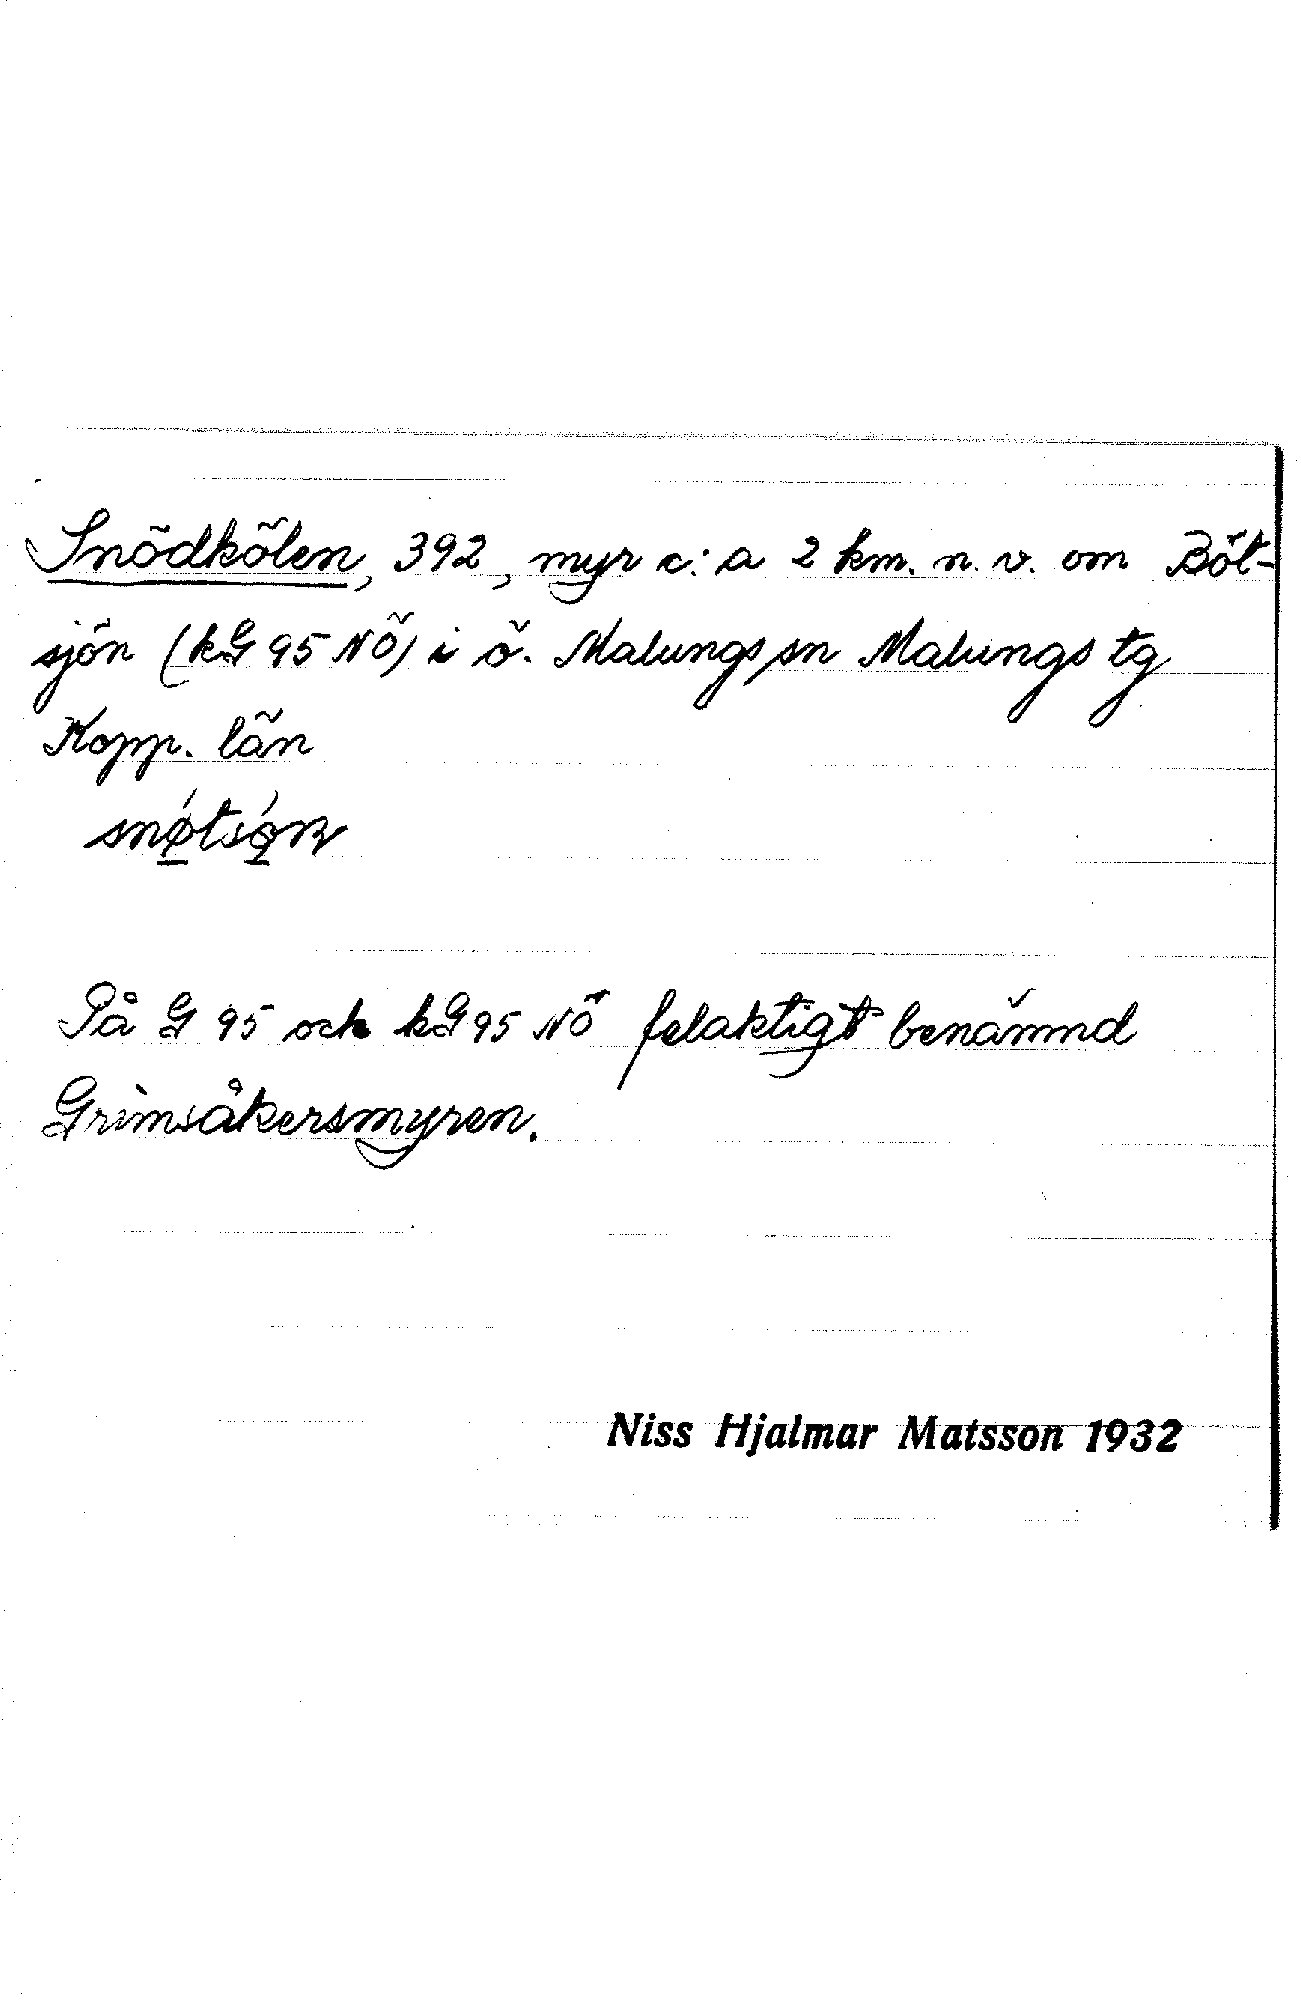 Snödkölen, 392, myr c:a 2 km. n. v. om Böt-
sjön (kG 95 NÖ) i ö. Malungs sn Malungs tg
Kopp. län
På G 95 och kG 95 NÖ felaktigt benämnd
Grimsåkersmyren.
Niss Hjalmar Matsson 1932